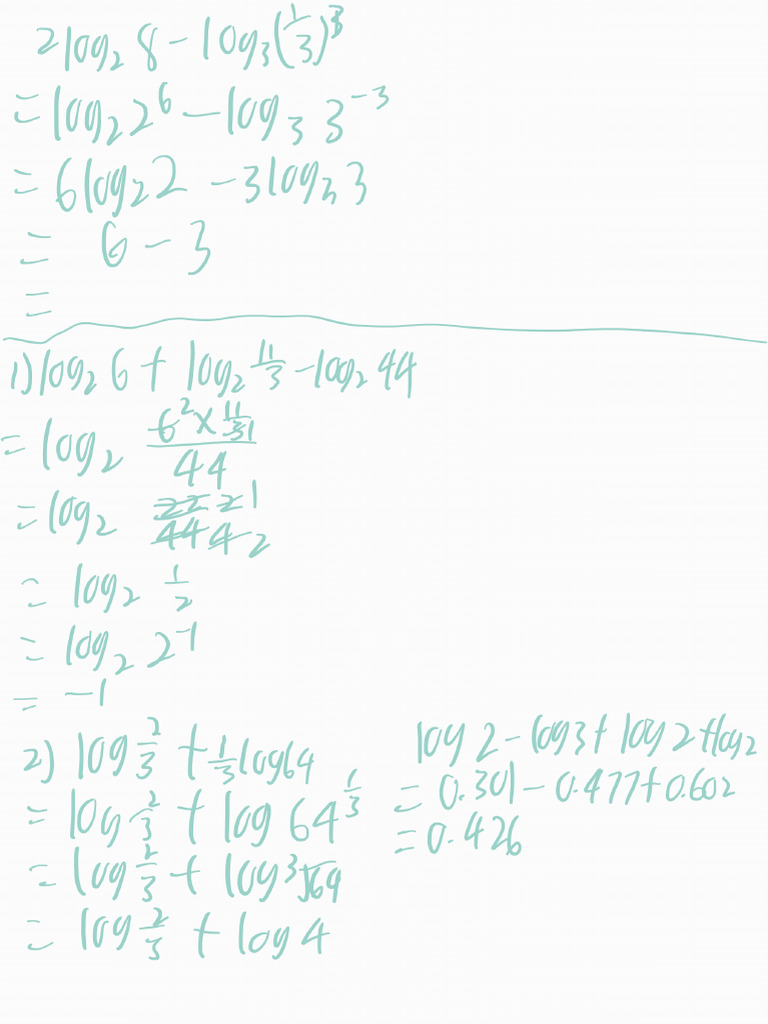 2log₂8 - log₃(1/3)³
= log₂2⁶ - log₃3⁻³
= 6log₂2 - 3log₃3
= 6 - 3
=
1) log₂6 + log₂11/3 - log₂44
= log₂ (6² × 11/3 1)/44
= log₂ 22 2 1/44 4 2
= log₂ 1/2
= log₂ 2⁻¹
= -1
2) log 2/3 + 1/3 log64
= log 2/3 + log 64^(1/3)
= log 2/3 + log ³√64
= log 2/3 + log 4
log 2 - log3 + log 2 + log2
= 0.301 - 0.477 + 0.602
= 0.426